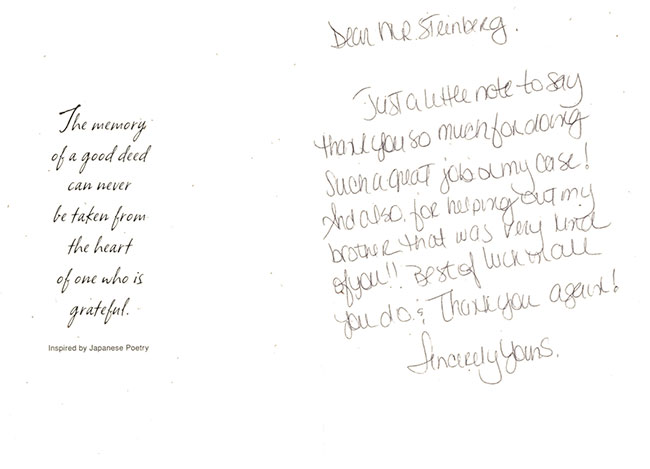 The memory
of a good deed
can never
be taken from
the heart
of one who is
grateful.
Inspired by Japanese Poetry
Dear MR. Steinberg.
Just a little note to say
thank you so much for doing
such a great job on my case!
And also, for helping out my
brother that was very kind
of you!! Best of luck in all
you do. & Thank you again!
Sincerely Yours.